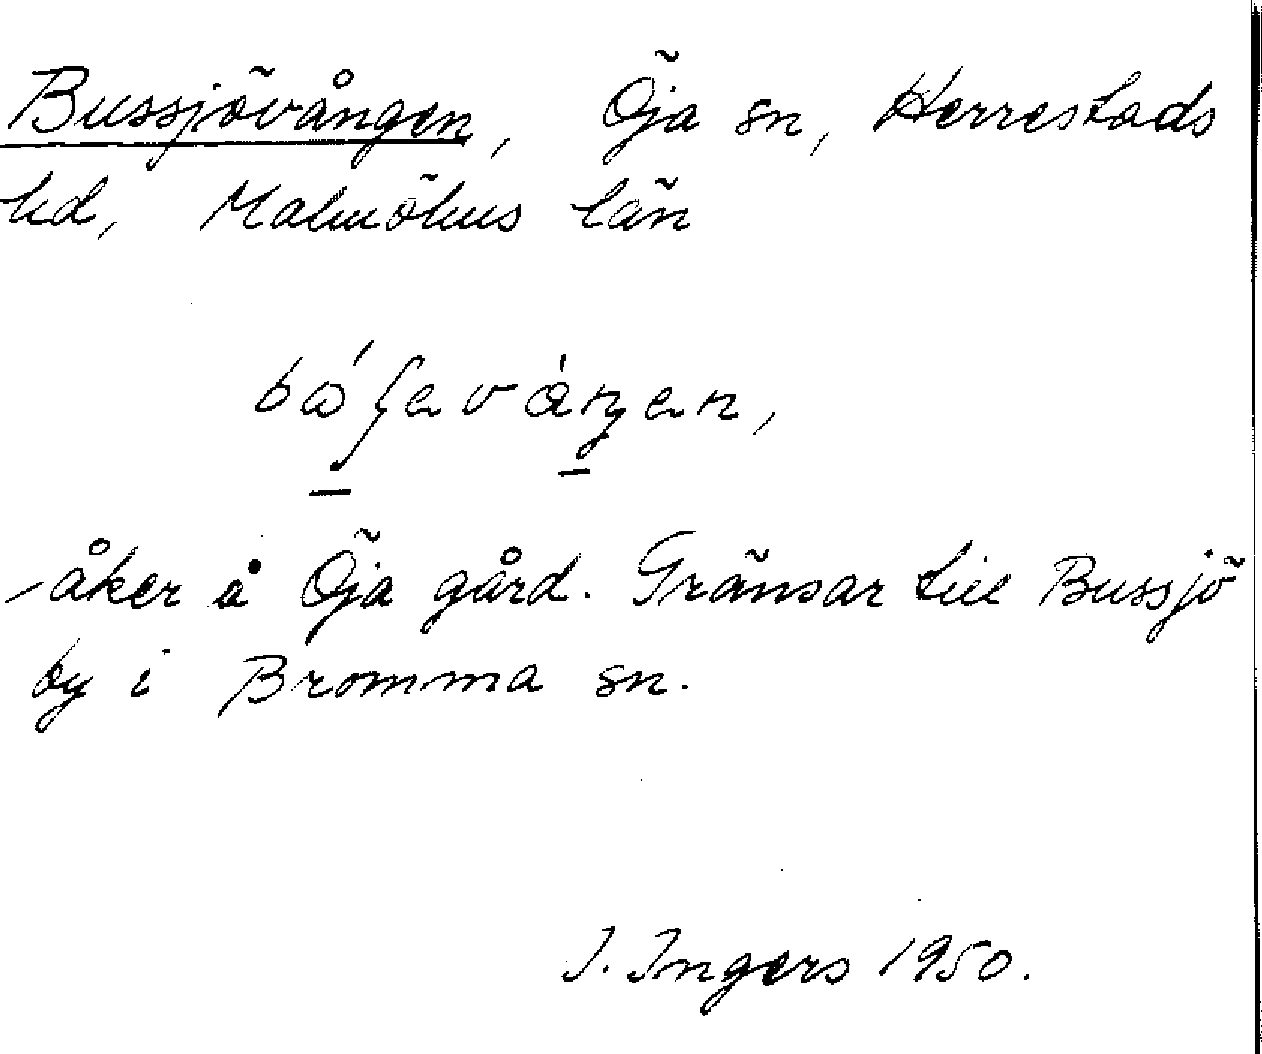 Bussjövången, Öja sn, Herrestads
hd, Malmöhus län
åker å Öja gård. Gränsar till Bussjö
by i Bromma sn.
I. Ingers 1950.